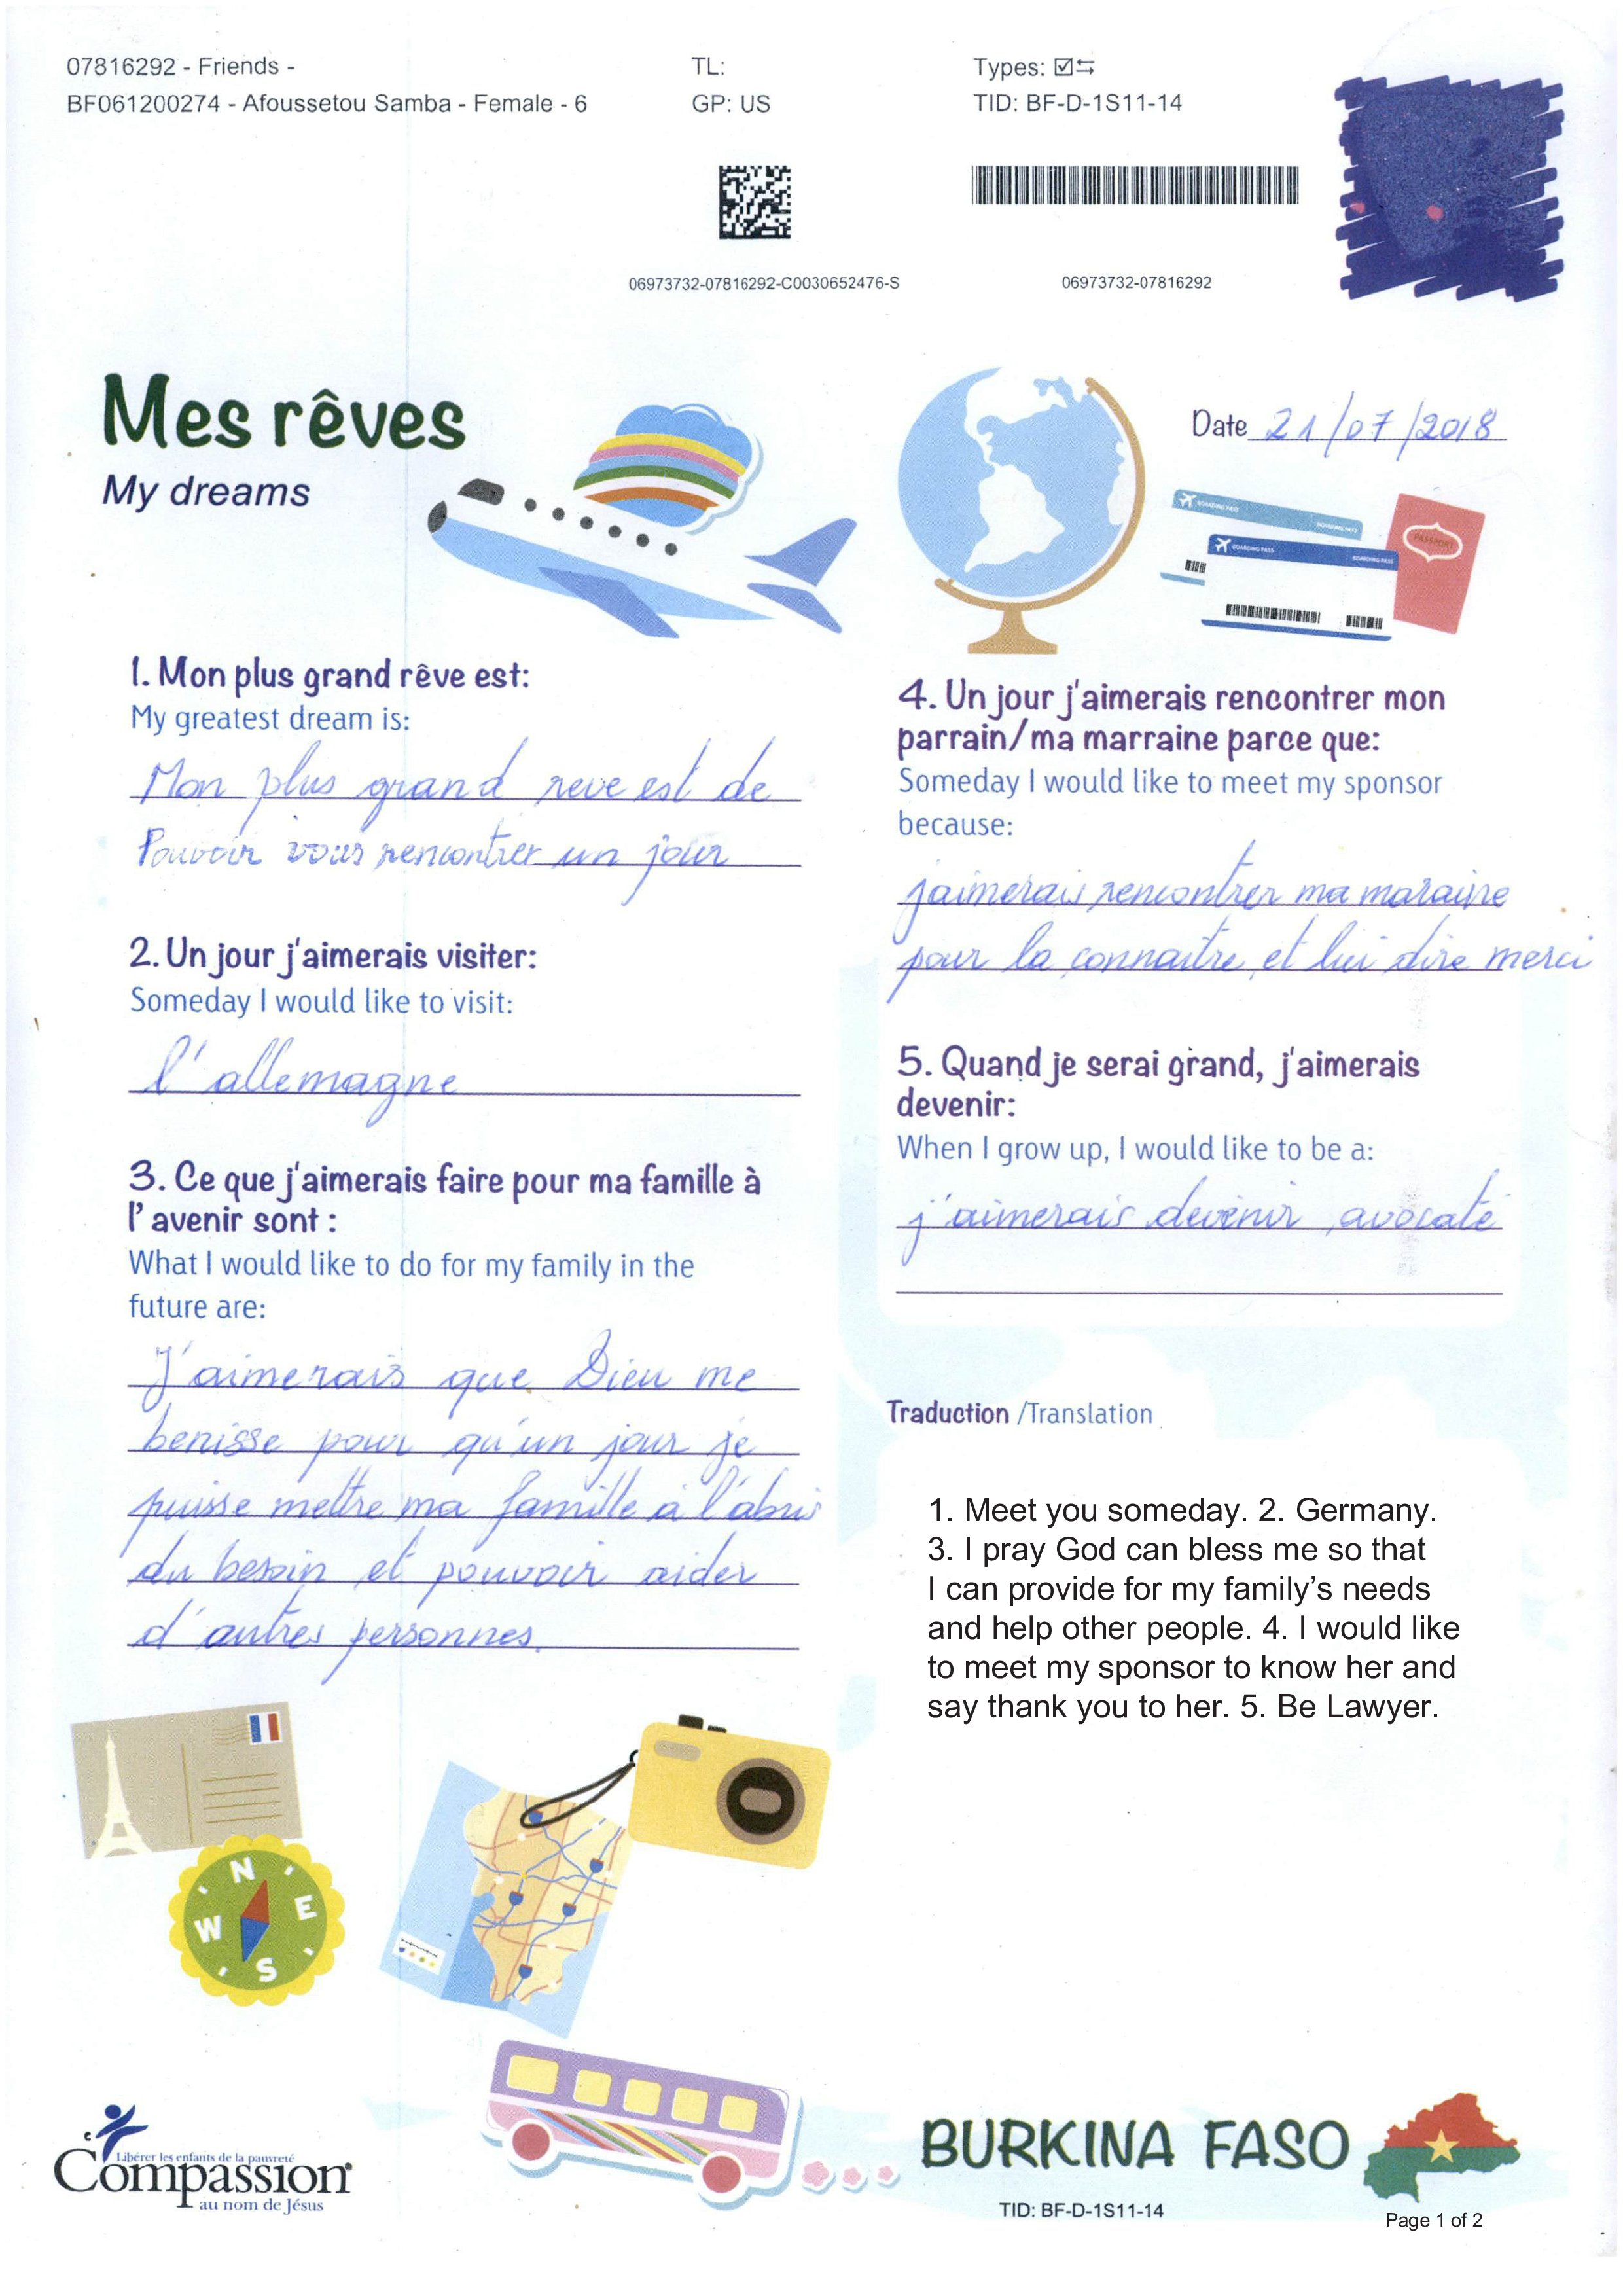 07816292 - Friends -
BF061200274 - Afoussetou Samba - Female - 6
TL:
GP: US
Types: ☑⇆
TID: BF-D-1S11-14
06973732-07816292-C0030652476-S
06973732-07816292
Mes rêves
My dreams
Date 21/07/2018
BOARDING PASS
BOARDING PASS
BOARDING PASS
BOARDING PASS
PASSPORT
1. Mon plus grand rêve est:
My greatest dream is:
Mon plus grand reve est de
Pouvoir vous rencontrer un jour
2. Un jour j'aimerais visiter:
Someday I would like to visit:
l'allemagne
3. Ce que j'aimerais faire pour ma famille à
l'avenir sont :
What I would like to do for my family in the
future are:
J'aimerais que Dieu me
benisse pour qu'un jour je
puisse mettre ma famille à l'abri
du besoin et pouvoir aider
d'autres personnes.
4. Un jour j'aimerais rencontrer mon
parrain/ma marraine parce que:
Someday I would like to meet my sponsor
because:
jaimerais rencontrer ma maraine
pour la connaitre et lui dire merci
5. Quand je serai grand, j'aimerais
devenir:
When I grow up, I would like to be a:
j'aimerais devenir avocate
Traduction /Translation
1. Meet you someday. 2. Germany.
3. I pray God can bless me so that
I can provide for my family's needs
and help other people. 4. I would like
to meet my sponsor to know her and
say thank you to her. 5. Be Lawyer.
N
E
W
S
Libérer les enfants de la pauvreté
Compassion
au nom de Jésus
BURKINA FASO
TID: BF-D-1S11-14
Page 1 of 2